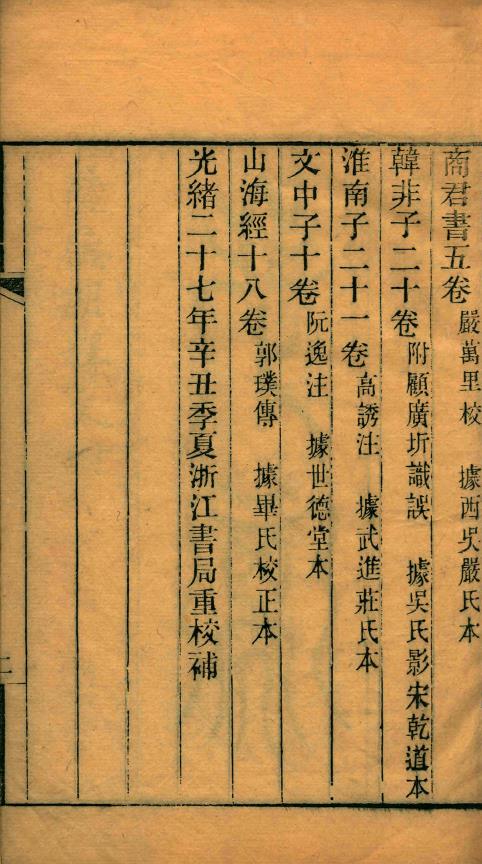 商君書五卷 嚴萬里校 據西吳嚴氏本
韓非子二十卷 附顧廣圻識誤 據吳氏影宋乾道本
淮南子二十一卷 高誘注 據武進莊氏本
文中子十卷 阮逸注 據世德堂本
山海經十八卷 郭璞傳 據畢氏校正本
光緒二十七年辛丑季夏浙江書局重校補
二